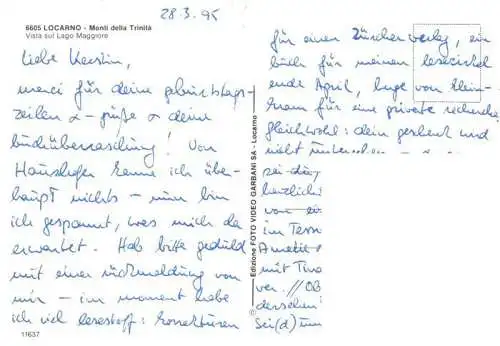 28.3.95
6605 LOCARNO - Monti della Trinità
Vista sul Lago Maggiore
Liebe Kerstin,
merci für deine geburtstags-
zeilen & -grüße & deine
buchüberraschung! Von
Haushofer kenne ich über-
haupt nichts – nun bin
ich gespannt, was mich da
erwartet. Hab bitte geduld
mit einer rückmeldung von
mir – im moment habe
ich viel lesestoff: korrekturen
11637
© Edizione FOTO VIDEO GARBANI SA - Locarno
für einen Zürcher verlag, ein
buch für meinen lesezirkel
ende April, berge von klein-
kram für eine private recherche.
gleichwohl: dein geschenk
nicht
sei da
herzlich
von ei
im Tess
mit Tina
ver. //OB
derschein
Sei(d) um